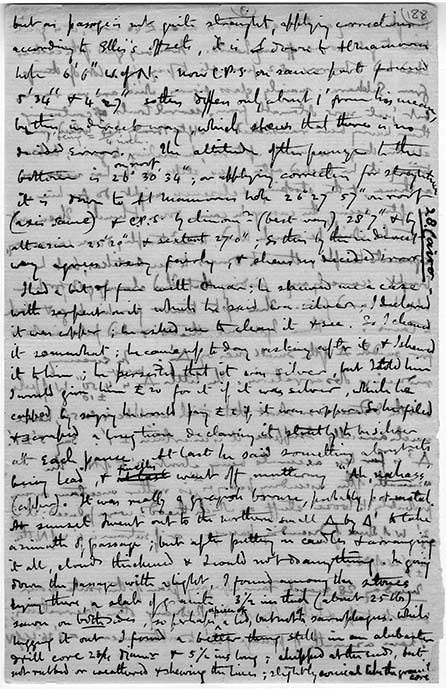 188
but as passage is not quite straight, applying corrections
according to Ellis's offsets, it is from door to Al Mamoun's
hole 6' 6" W of N. Now C.P.S. on same part found
5' 34" & 4' 27" so this differs only about 1' from his mean
by this indirect way, which shews that there is no
decided error. The altitude of the passage to the
bottom on roof is 26° 30' 34"; or applying correction for straightness
it is down to Al Mamoun's hole 26° 27' 57" on roof
(axis same) & C.P.S. by clinomr (best way) 28' 7" & by
alt-azim 25' 20" & sextant 27' 0", so this by the indirect
way agrees very fairly, & shews no decided error.
28 Cairo.
I had a bit of fun with Omar; he shewed me a case
with serpent on it which he said was silver, I declared
it was copper; he asked me to clean it & see. So I cleaned
it somewhat; he came up to day asking after it & I shewed
it to him; he persisted that it was silver, but I told him
I would give him £20 for it if it was silver, while he
capped by saying he would pay £ if it was copper. So he filed
& scraped a long time declaring it to be silver
at each pause. At last he said something about its
being lead, & finally went off muttering "Ah, nahass"
(copper). It was really a greyish bronze, probably
At sunset I went out to the northern small by to take
azimuth of passage; but after putting in candles & arranging
it all, clouds thickened & I could not do anything. In going
down the passage with a light, I found among the stones
lying there, a slab of granite 3½ ins thick (about 25 lbs)
sawn on both sides, so perhaps a lid, but not to sarcophagus. While
lugging it out I found a better thing still in an alabaster
drill core 2¾ diamr & 5½ ins long; chipped at the end, but
not rubbed or weathered & shewing the lines; slightly conical like the granite
core